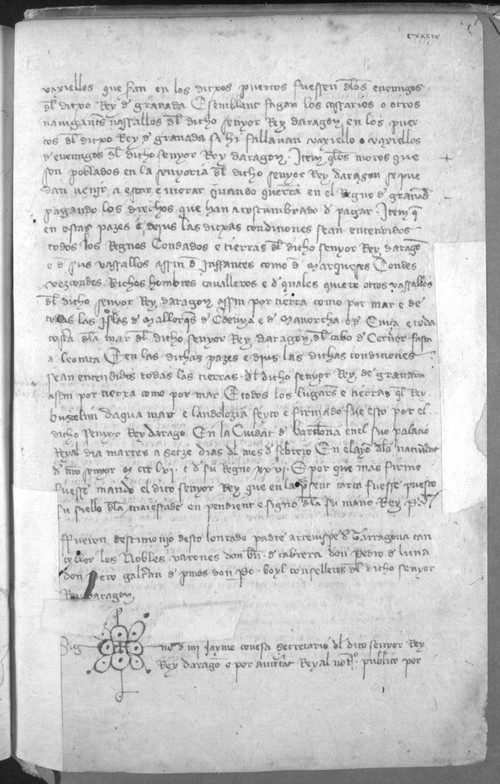 cxxxix
vaxiellos que seran en los dichos puertos fuessen dlos enemigos
del dicho Rey de granada E semblant fagan los cossarios o otros
navigants vassallos del dicho senyor Rey daragon en los puer
tos del dicho Rey de granada si hi fallaran vaxiello o vaxiellos
denemigos del dicho senyor Rey daragon. Item qlos moros que
son poblados en la senyoria del dicho senyor Rey daragon se pue
dan venir a estar e morar quando querran en el Regno de granada
pagando los drechos que han acostumbrado de pagar. Item q
en estas pazes e dejus las dichas condiciones sean entendidos
todos los Regnos Condados e tierras del dicho senyor Rey darago
e de sus vassallos assin de Inffantes como de Marqueses Condes
vezcondes Richos hombres cavalleros e de quales quiere otros vassallos
del dicho senyor Rey daragon assin por tierra como por mar e de
todas las Islas de Mallorqs de Cerdenya e de Manorcha e de Eviça e toda
costa dla mar del dicho senyor Rey daragon del cabo de Cerver fasta
a E en las dichas pazes e dejus las dichas condiciones
sean entendidos todas las tierras del dicho senyor Rey de granada
assin por tierra como por mar E todos los lugares e tierras ql Rey
daqua mar e landolozia feyto e firmado fue esto por el
dicho senyor Rey darago. En la Ciudat de barclona en el suo palacio
Reyal dia martes a setze dias del mes de febrero En el anyo dla natividat
de nro senyor M ccc lxvii e de su Regno xxxvi. E por que mas firme
fuesse mando el dito senyor Rey que en la psent carta fuesse puesto
su siello dla maiestade en pendient e signo dla su mano. Rey. P.
Fueron destimonio desto lonrado padre arcevispe de Tarragona can
celler los Nobles varones don bñ. de cabrera don Pedro de luna
don Pero galceran de pinos don Po. boyl conselleros del dicho senyor
Rey daragon,
Sig no de mi Jayme conesa secretario del dito senyor Rey
Rey darago e por auctat Reyal not. publico por